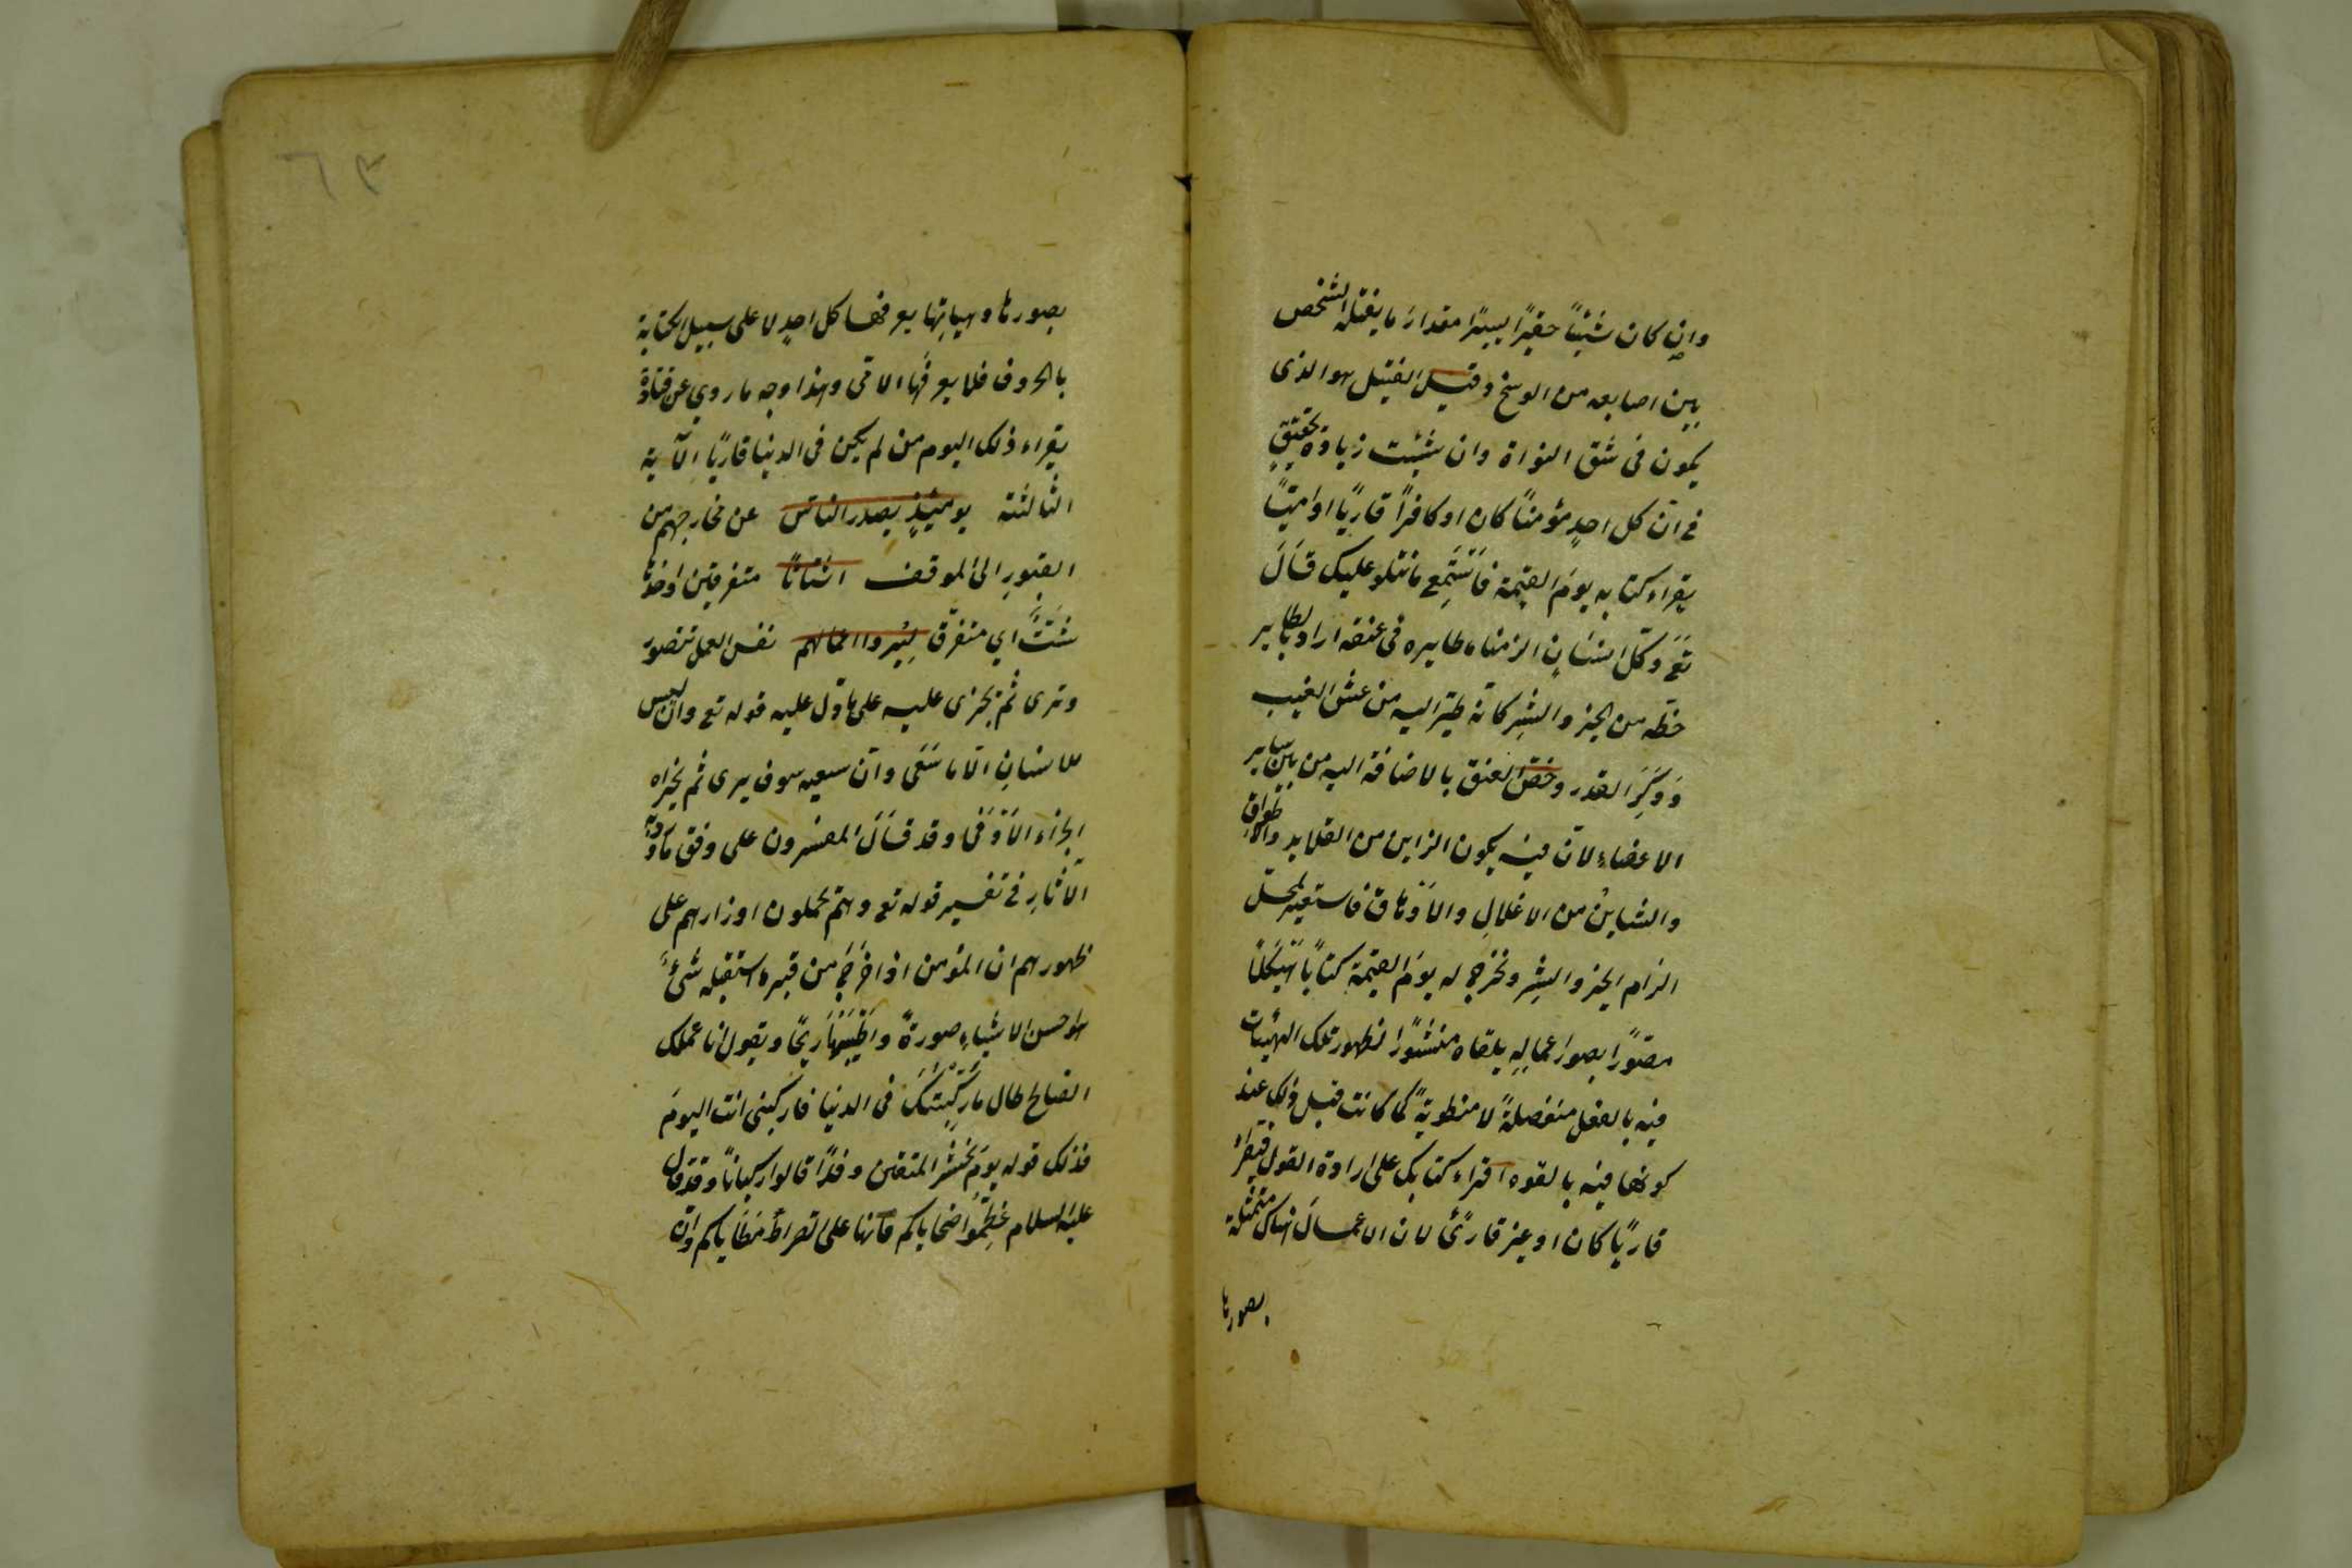 وان كان شيئاً حقيراً يسيرًا مقدارَ ما يفتله الشخص
بين اصابعه من الوسخ وقيل الفتيل هو الذى
يكون فى شق النواة وان شئت زيادة تحقيقٍ
فى انّ كل احدٍ مؤمناً كان او كافراً قاريًا او اميّاً
يقراء كتابه يومَ القيمة فَاسْتَمِع ما نتلو عليك قَالَ
تَعَ وكلّ انسَانٍ الزمناه طايره فى عنقه اراد بالطاير
حظّه من الخير والشرِ كانّه طيّر اليه من عشّ الغيب
وَوَكَرِ القدر وخصّ العنق بالاضافة اليه من بين ساير
الاعضاءِ لانّ فيه يكون الزاين من القلايد والاطواق
والشاين من الاغلالِ والاَوْثاق فاستعير لمحلّ
الزام الخير والشرِ ونخرج له يومَ القيمة كتاباً هَيْكَلاً
مصوّرًا بصور اعمالِهِ يلقاه منشورًا لظهور تلك الهيئات
فيه بالفعل منفصلةً لا منطويةً كما كانت قبل ذلك عند
كونها فيه بالقوه اقراء كتابك على ارادة القول فيقراءُ
قاريًا كان او غير قارئٍ لان الاعمالَ هناك متمثلة
بصورها
٦٣
بصورها وهيآتها يعرفها كل احدٍ لا على سبيل الكتابة
بالحروف فلا يعرفُها الامّى وهذا وجه ما روي عن قتادة
يقراء ذلك اليوم من لم يكن فى الدنيا قاريًا الآية
الثالثة يومئِذٍ يصدر الناس عن مخارجهم من
القبورِ الى الموقف اشتاتاً متفرقين واحدها
شَتٌّ اي متفرق لِيُرَوا اعمالهم نفس العمل تتصور
وترى ثم يجزى عليه على ما دل عليه قوله تع وان ليس
للانسانِ الّا ما سَعَى وانّ سعيه سوف يرى ثم يجزاه
الجزاء الاَوْفَى وقد قَالَ المفسرون على وفق ما ورد به
الآثارِ فى تفسير قوله تع وهم يحملون اوزارهم على
ظهورهم ان المؤمن اذا خرَجَ من قبره استقبله شىءٌ
هو احسن الاشياءِ صورةً واَطْيَبُهَا رِيحًا ويقول انا عملك
الصالح طال ما رَكِبْتُكَ فى الدنيا فاركبنى انت اليومَ
فذلك قوله يومَ نحشر المتقين وفدًا قالوا ركباناً وقد قال
عليه السلام عَظِّمُوا ضحاياكم فانها على الصراط مَطَاياكم وانّ